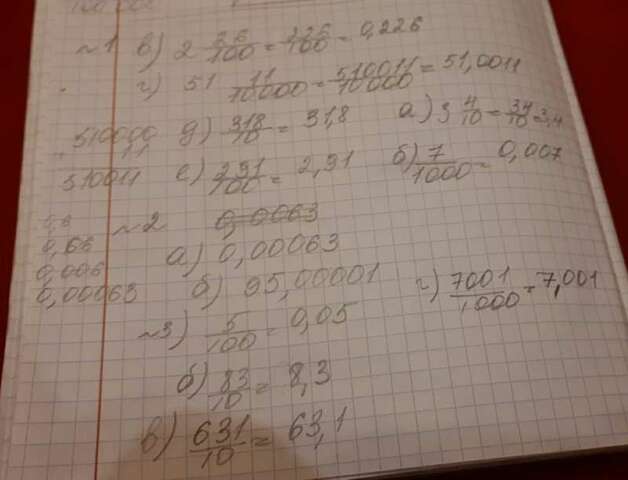 ~1 в) 2 26/100 = 226/100 = 0,226
г) 51 11/10000 = 510011/10000 = 51,0011
510000 д) 318/10 = 31,8 а) 3 4/10 = 34/10 = 3,4
11
510011 е) 291/100 = 2,91 б) 7/1000 = 0,007
~2 0,0063
0,66 а) 0,00063
0,006
0,00063 б) 95,00001 г) 7001/1000 = 7,001
~3) 5/100 = 0,05
б) 83/10 = 8,3
в) 631/10 = 63,1